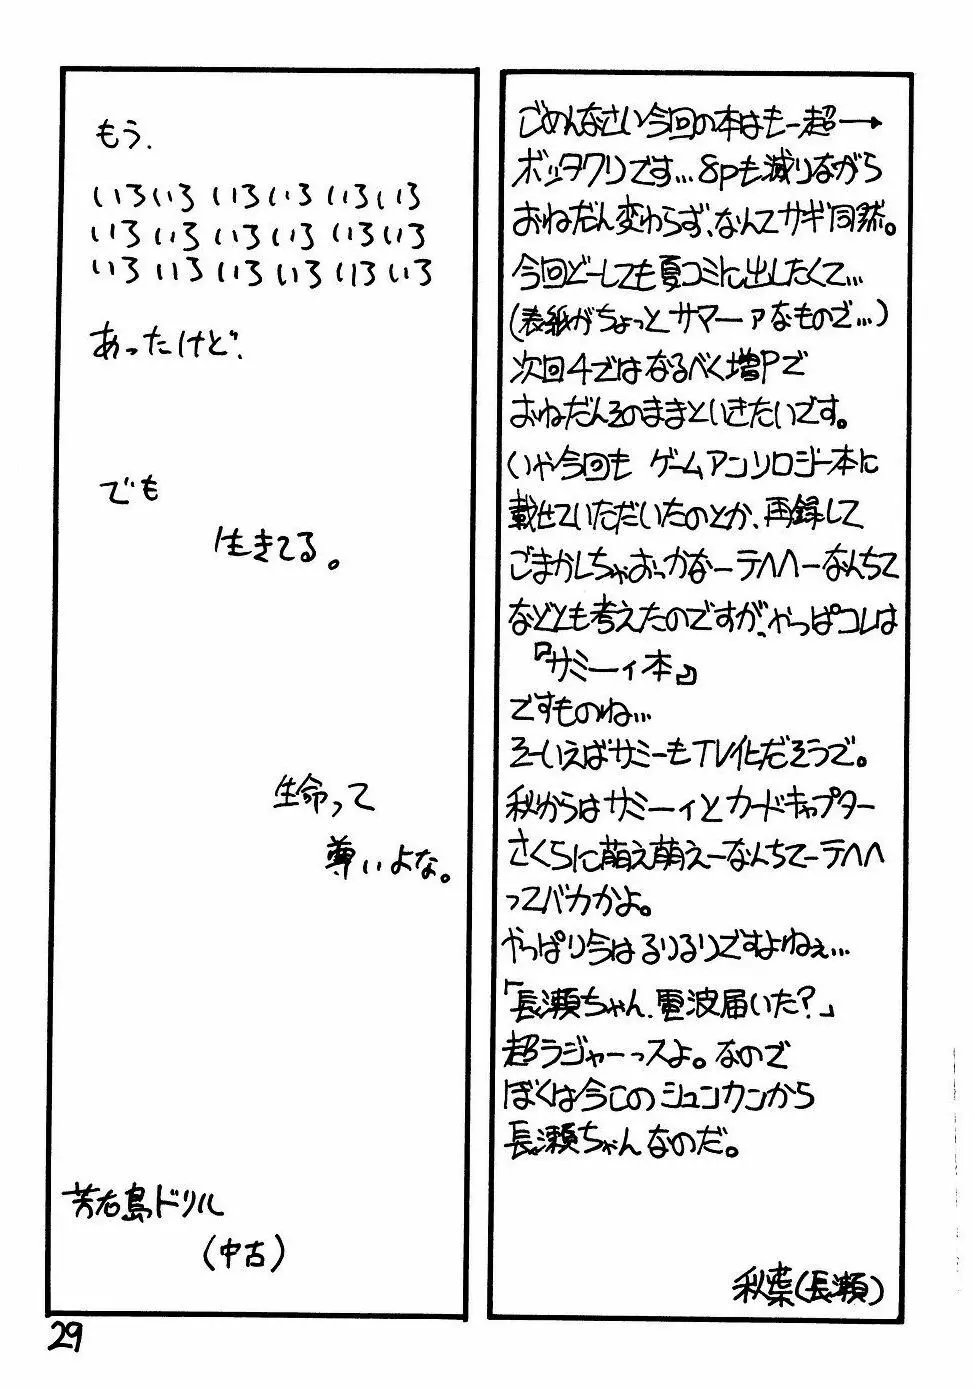 もう、
いろいろ いろいろ いろいろ
いろ いろ いろ いろ いろ いろ
いろ いろ いろ いろ いろ いろ
あったけど、
でも
生きてる。
生命って
尊いよな。
ドリル
(中古)
ごめんなさい今回の本はもー超ー→
ボッタクリです…8pも減りながら
おねだん変わらず、なんてサギ同然。
今回どーしても夏コミに出したくて…
(表紙がちょっとサマーァなもので…)
次回4ではなるべく増Pで
おねだんそのままといきたいです。
いや今回も ゲームアンソロジー本に
載せていただいたのとか、再録して
ごまかしちゃおっかなーテヘヘーなんちて
などとも考えたのですが、やっぱコレは
『サミーィ本』
ですものね…
そーいえばサミーもTV化だそうで。
秋からはサミーィとカードキャプター
さくらに萌え萌えーなんちてーテヘヘ
ってバカかよ。
やっぱり今はるりるりですよねぇ…
「長瀬ちゃん、電波届いた?」
超ラジャーっスよ。なので
ぼくは今このシュンカンから
長瀬ちゃんなのだ。
秋葉(長瀬)
29